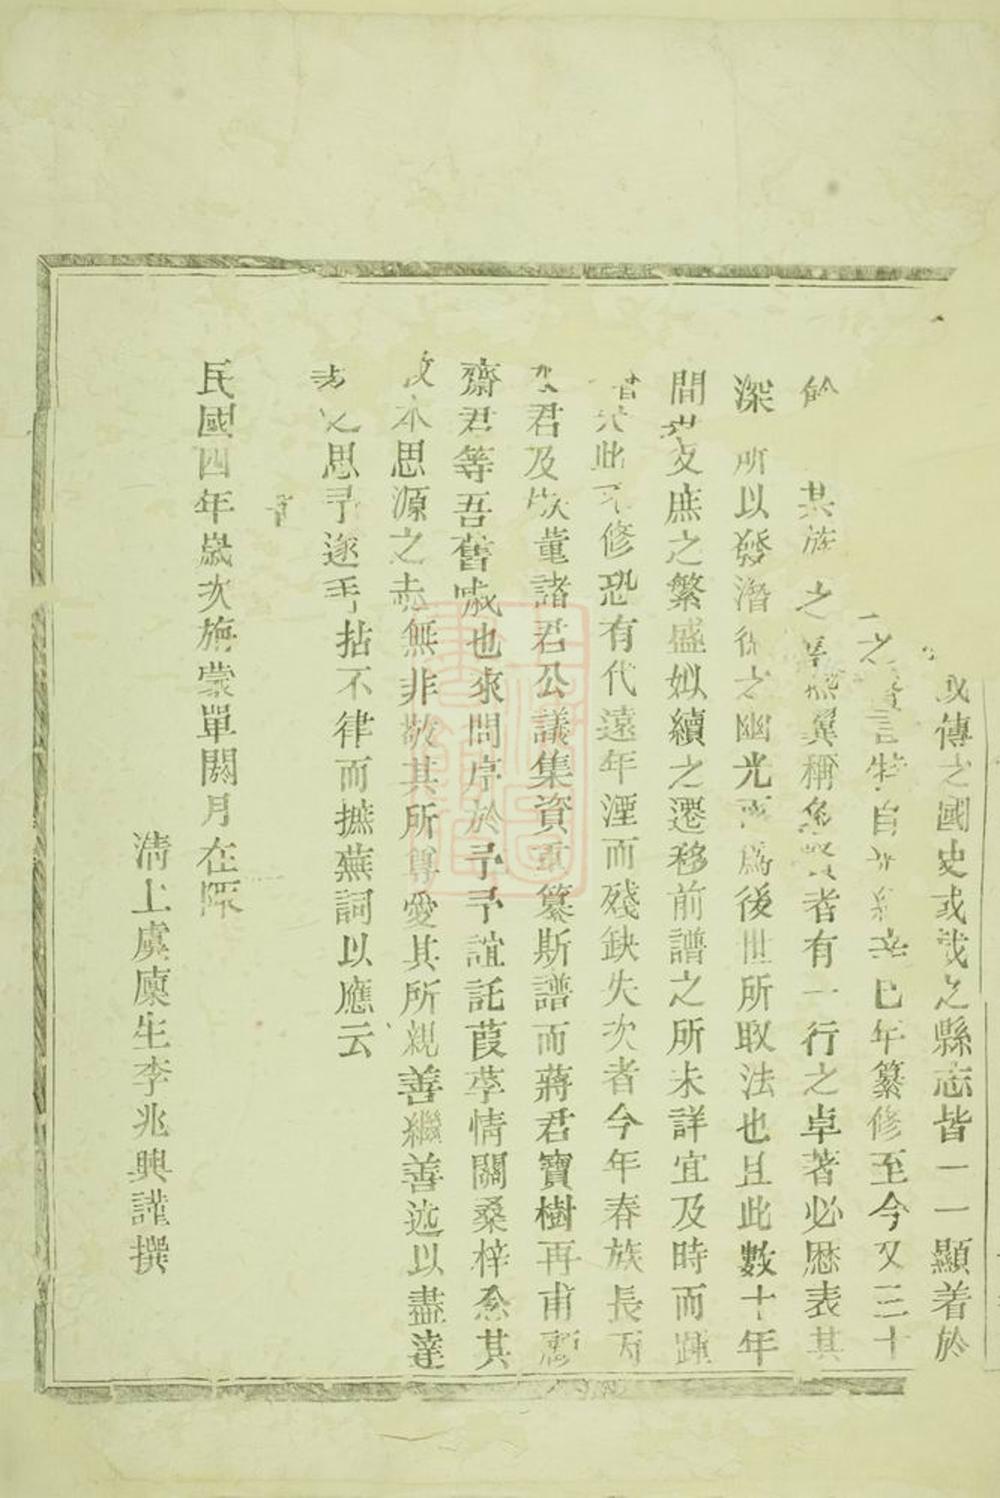 傳之國史或載之縣志皆一一顯着於
之 言特自 辛巳年纂修至今又三十
其族之 翼稱 者有一行之卓著必歷表其
深 所以發潛 之幽光 爲後世所取法也且此數十年
間 支庶之繁盛姒續之遷移前譜之所未詳宜及時而踵
此不修恐有代遠年湮而殘缺失次者今年春族長
君及 董諸君公議集資重纂斯譜而蔣君寶樹再甫
齋君等吾舊 也來問序於予予誼託葭莩情關桑梓念其
本思源之 無非敬其所尊愛其所親善繼善述以盡
思予遂手拈不律而摭蕪詞以應云
民國四年歲次旃蒙單閼月在陬
清上虞廩生李兆興謹撰